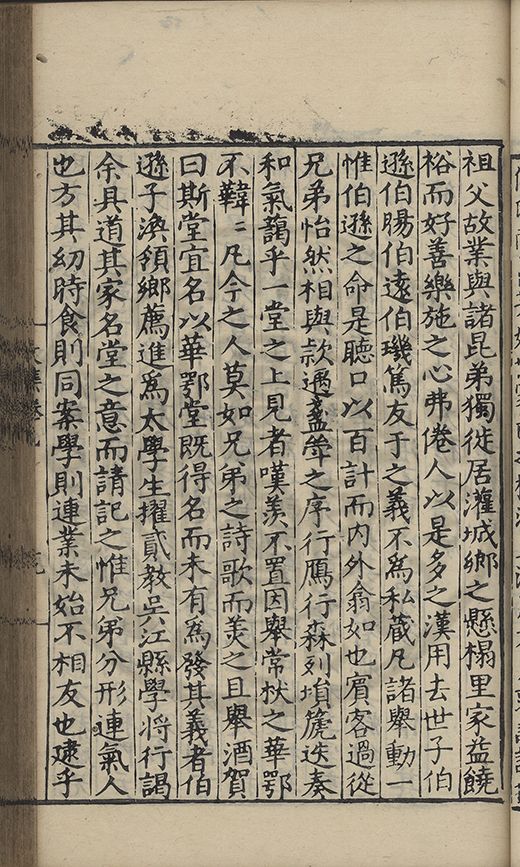 祖父故業與諸昆弟獨徙居灌城鄉之懸榻里家益饒
裕而好善樂施之心弗倦人以是多之漢用去世子伯
遜伯暘伯遠伯璣篤友于之義不為私蔵凡諸舉動一
惟伯遜之命是聽口以百計而内外翕如也賓客過從
兄弟怡然相與欵遇盞斝之序行鴈行森列塤箎迭奏
和氣藹乎一堂之上見者嘆羨不置因舉常杕之華鄂
不韡〻凡今之人莫如兄弟之詩歌而美之且舉酒賀
曰斯堂宜名以華鄂堂既得名而未有為發其義者伯
遜子渙領鄉薦進為太學生擢貳教吳江縣學將行謁
余具道其家名堂之意而請記之惟兄弟分形連氣人
也方其幼時食則同案學則連業未始不相友也建乎